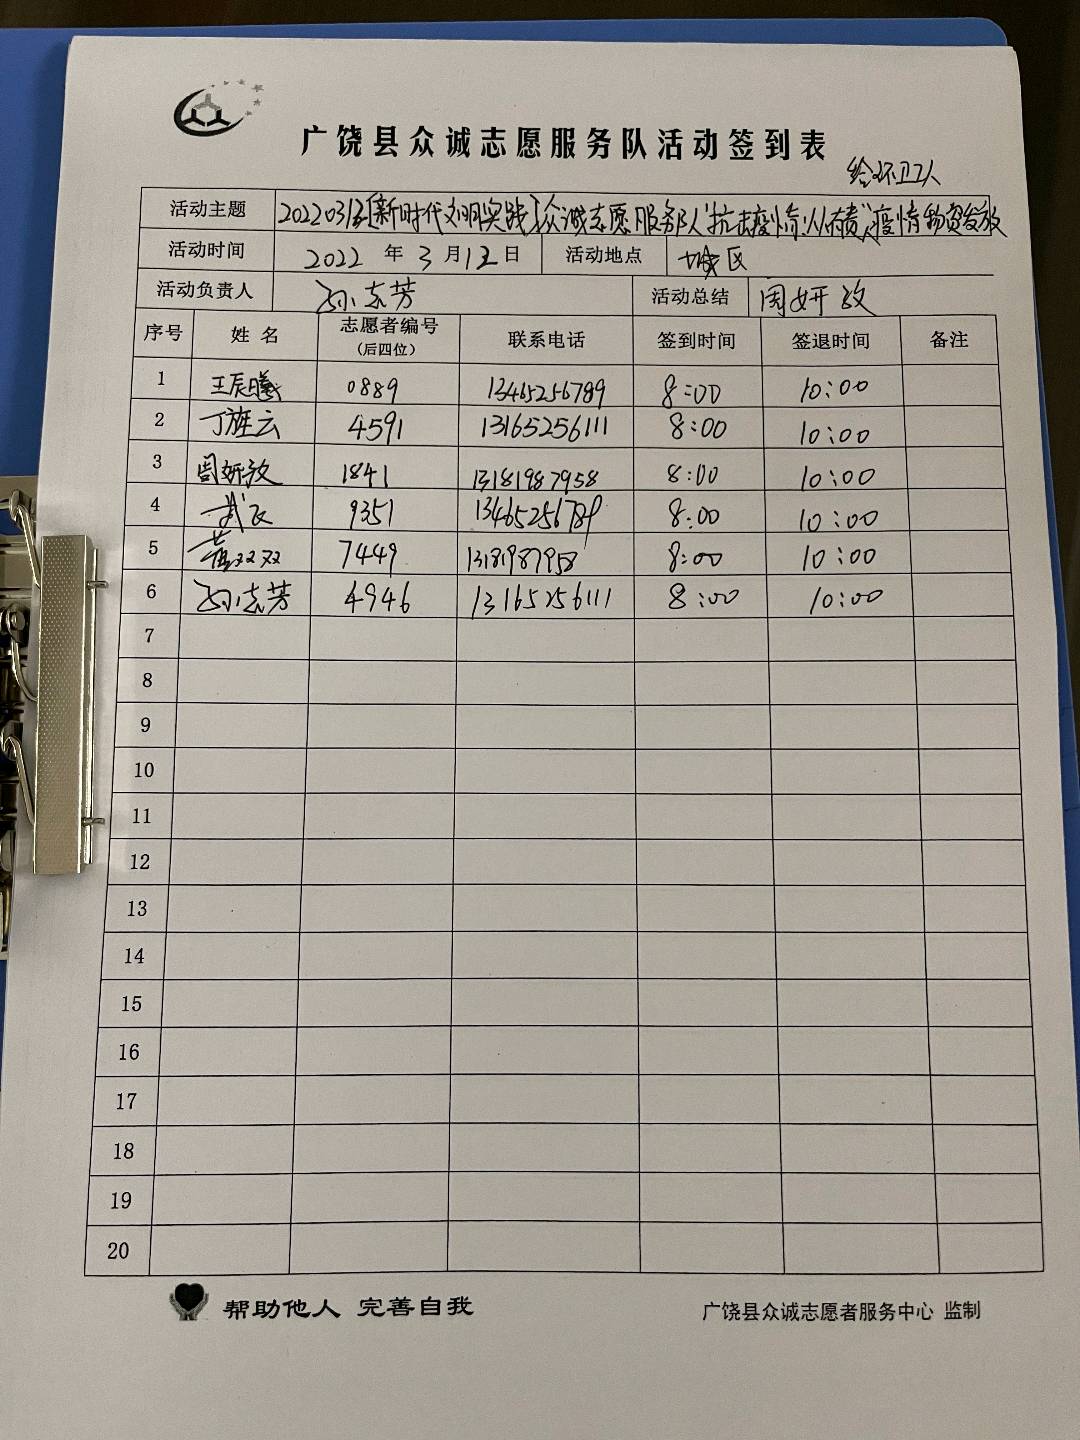 广饶县众诚志愿服务队活动签到表
给环卫工人
活动主题 [新时代文明实践]众诚志愿服务队"抗击疫情,从有责"疫情物资发放
活动时间 2022 年 3 月 12 日 活动地点 城区
活动负责人 孙志芳 活动总结 周妍孜
序号 姓 名 志愿者编号 (后四位) 联系电话 签到时间 签退时间 备注
1 王辰曦 0889 13465256789 8:00 10:00
2 丁旌云 4591 13165256111 8:00 10:00
3 周妍孜 1841 13181987958 8:00 10:00
4 武 9351 13465256789 8:00 10:00
5 双双 7449 13181987958 8:00 10:00
6 孙志芳 4946 13165256111 8:00 10:00
7
8
9
10
11
12
13
14
15
16
17
18
19
20
帮助他人 完善自我
广饶县众诚志愿者服务中心 监制